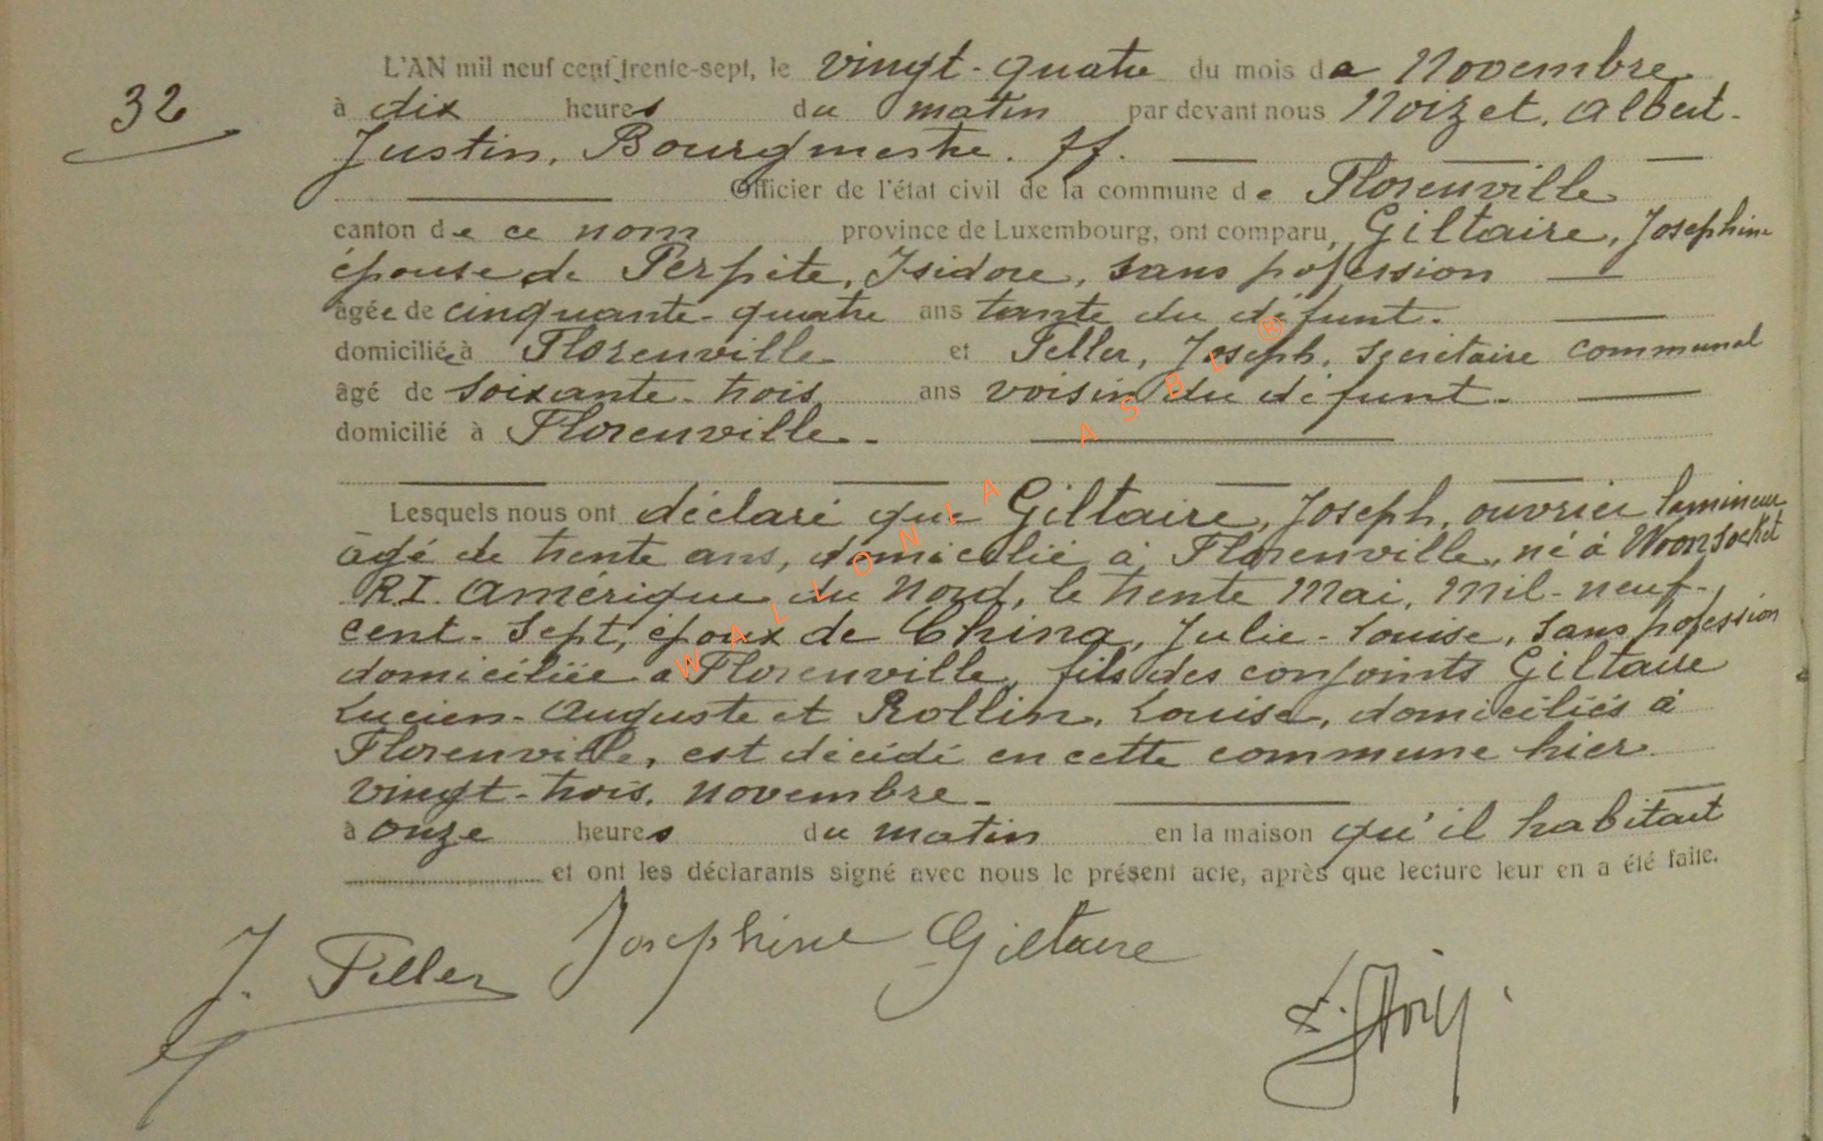 32
L'AN mil neuf cent trente-sept, le vingt-quatre du mois de Novembre
à dix heures du matin par devant nous Noizet, Albert-
Justin, Bourgmestre. ff.
Officier de l'état civil de la commune de Florenville
canton de ce nom province de Luxembourg, ont comparu, Giltaire, Josephine
épouse de Perpète, Isidore, sans pofession
âgée de cinquante-quatre ans tante du défunt.
domiciliée à Florenville et Peller, Joseph, secrétaire communal
âgé de soixante-trois ans voisin du défunt.
domicilié à Florenville.
Lesquels nous ont déclaré que Giltaire, Joseph, ouvrier lamineur
âgé de trente ans, domicilié à Florenville, né à Woonsocket
R.I. Amérique du Nord, le trente Mai, mil-neuf-
cent-sept, époux de China, Julie-Louise, sans pofession
domiciliée à Florenville, fils des conjoints Giltaire
Lucien-Auguste et Rollin, Louise, domiciliés à
Florenville, est décédé en cette commune hier
vingt-trois, novembre-
à onze heures du matin en la maison qu'il habitait
et ont les déclarants signé avec nous le présent acte, après que lecture leur en a été faite.
J. Peller Josephine Giltaire
WALLONIA ASBL ®